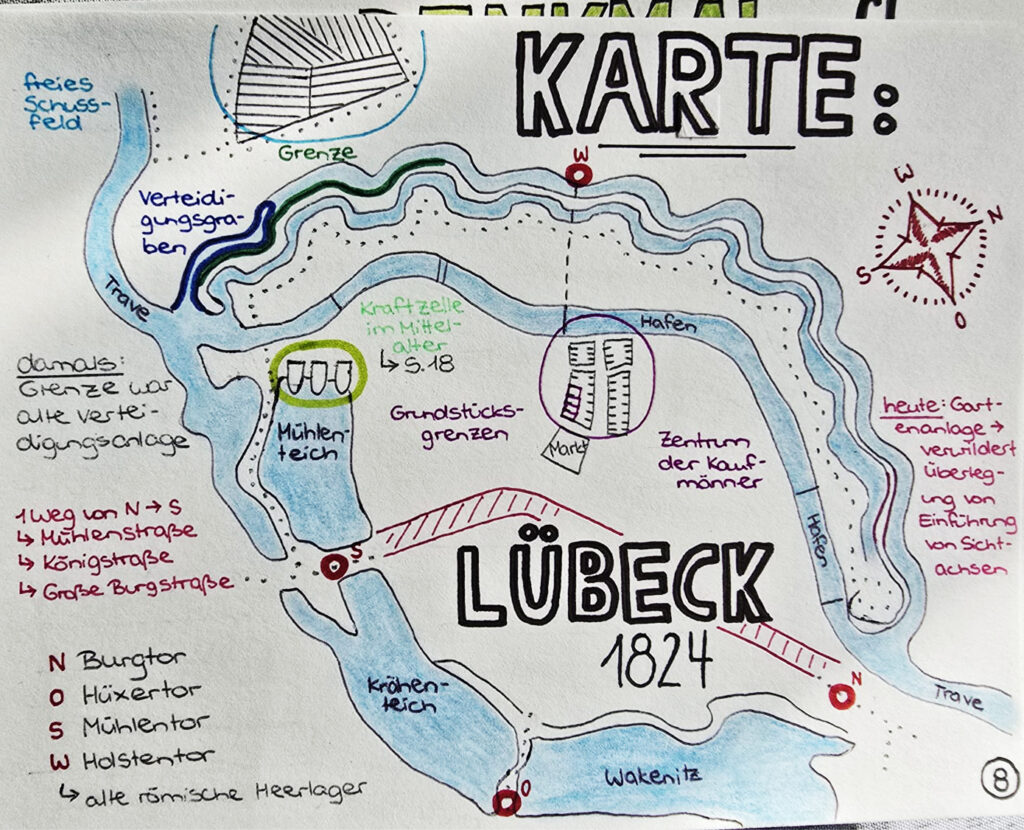 DENKMAL
KARTE:
freies
Schuss-
feld
Grenze
W
Verteidi-
gungsgra-
ben
W
N
S
O
Trave
Kraftzelle
im Mittel-
alter
↳ S. 18
Hafen
damals:
Grenze war
alte Vertei-
digungsanlage
Mühlen-
teich
Grundstücks-
grenzen
Markt
Zentrum
der Kauf-
männer
heute: Gart-
enanlage →
verwildert
Überleg-
ung von
Einführung
von Sicht-
achsen
Hafen
1 Weg von N → S
↳ Mühlenstraße
↳ Königstraße
↳ Große Burgstraße
S
LÜBECK
1824
N Burgtor
O Hüxertor
S Mühlentor
W Holstentor
↳ alte römische Heerlager
Krähen-
teich
N
Trave
Wakenitz
O
8